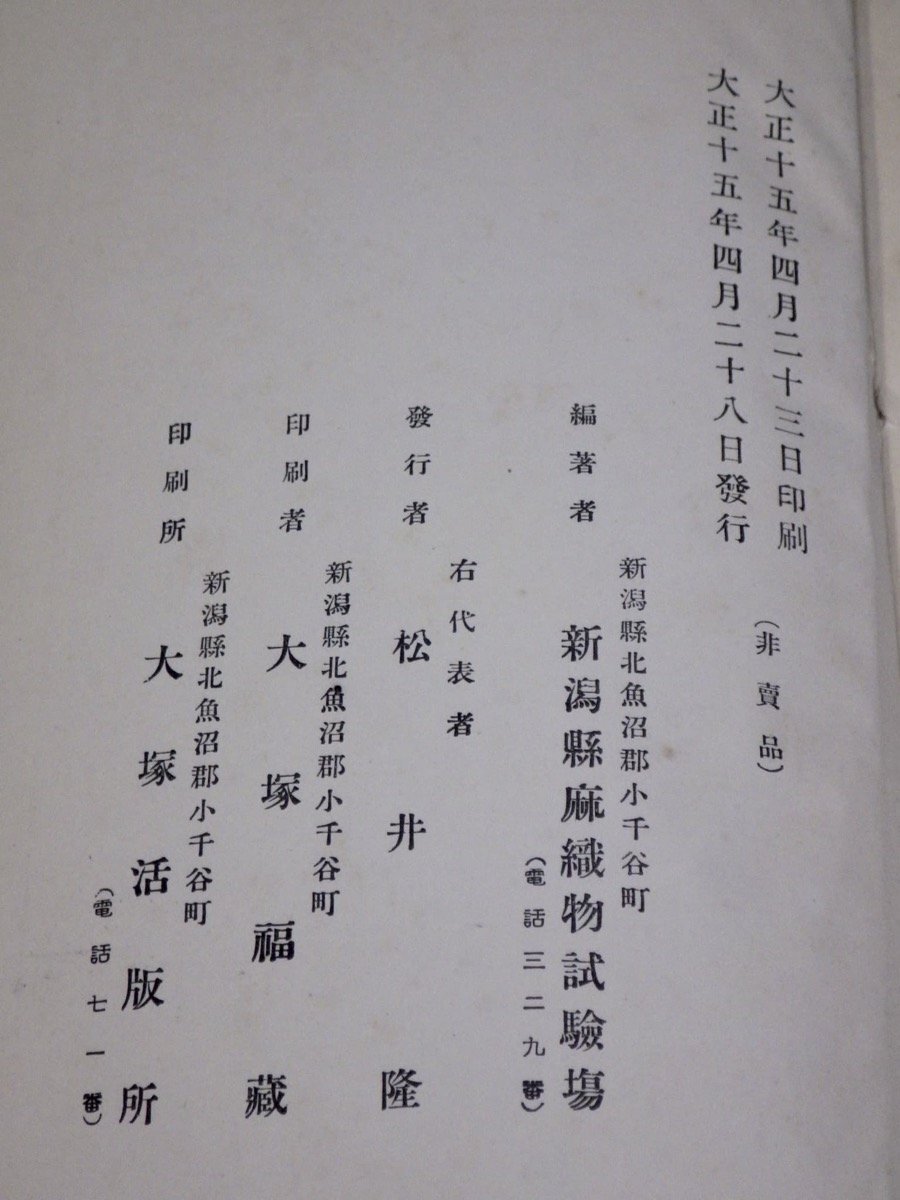 大正十五年四月二十三日印刷
大正十五年四月二十八日發行
（非賣品）
新潟縣北魚沼郡小千谷町
編著者
新潟縣麻織物試驗場
（電話三二九番）
右代表者
發行者
松井隆
新潟縣北魚沼郡小千谷町
印刷者
大塚福藏
新潟縣北魚沼郡小千谷町
印刷所
大塚活版所
（電話七一番）